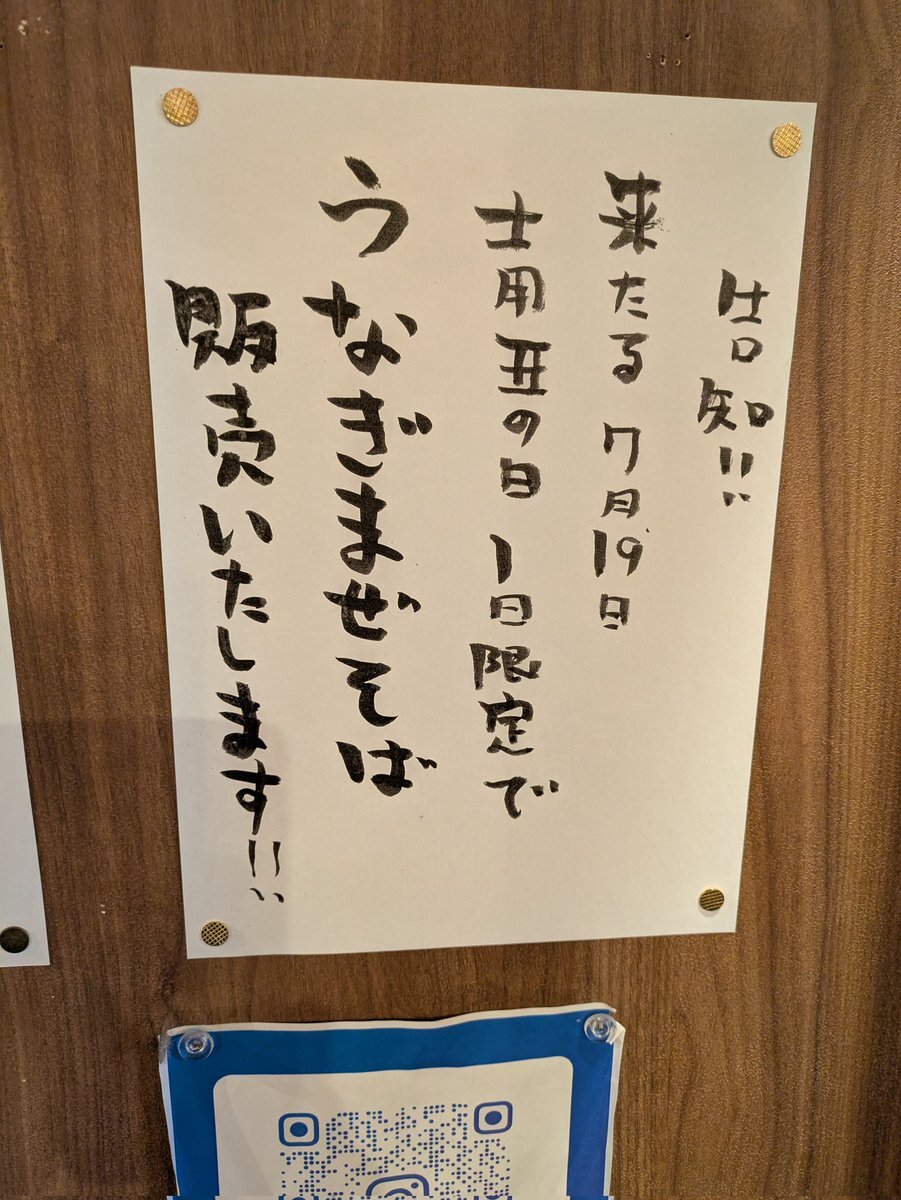 告知!!
来たる7月19日
土用丑の日 1日限定で
うなぎまぜそば
販売いたします!!